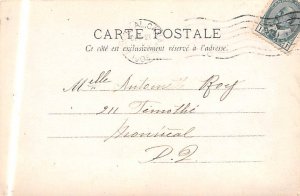 CARTE POSTALE
Ce côté est exclusivement réservé à l'adresse.
Melle Antoinette Roy
211 Timothé
Montréal
P. Q